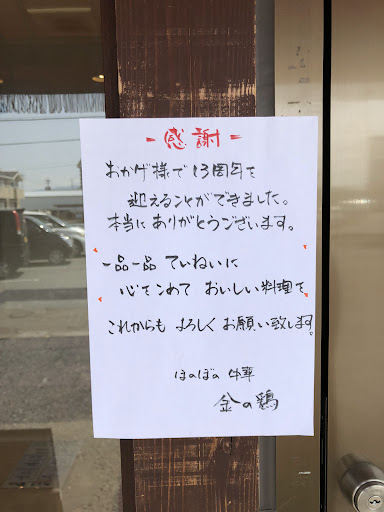 -感謝-
おかげ様で13周年を
迎えることができました。
本当にありがとうございます。
一品一品ていねいに
心をこめて おいしい料理を
これからも よろしくお願い致します。
ほのぼの 中華
金の鶏